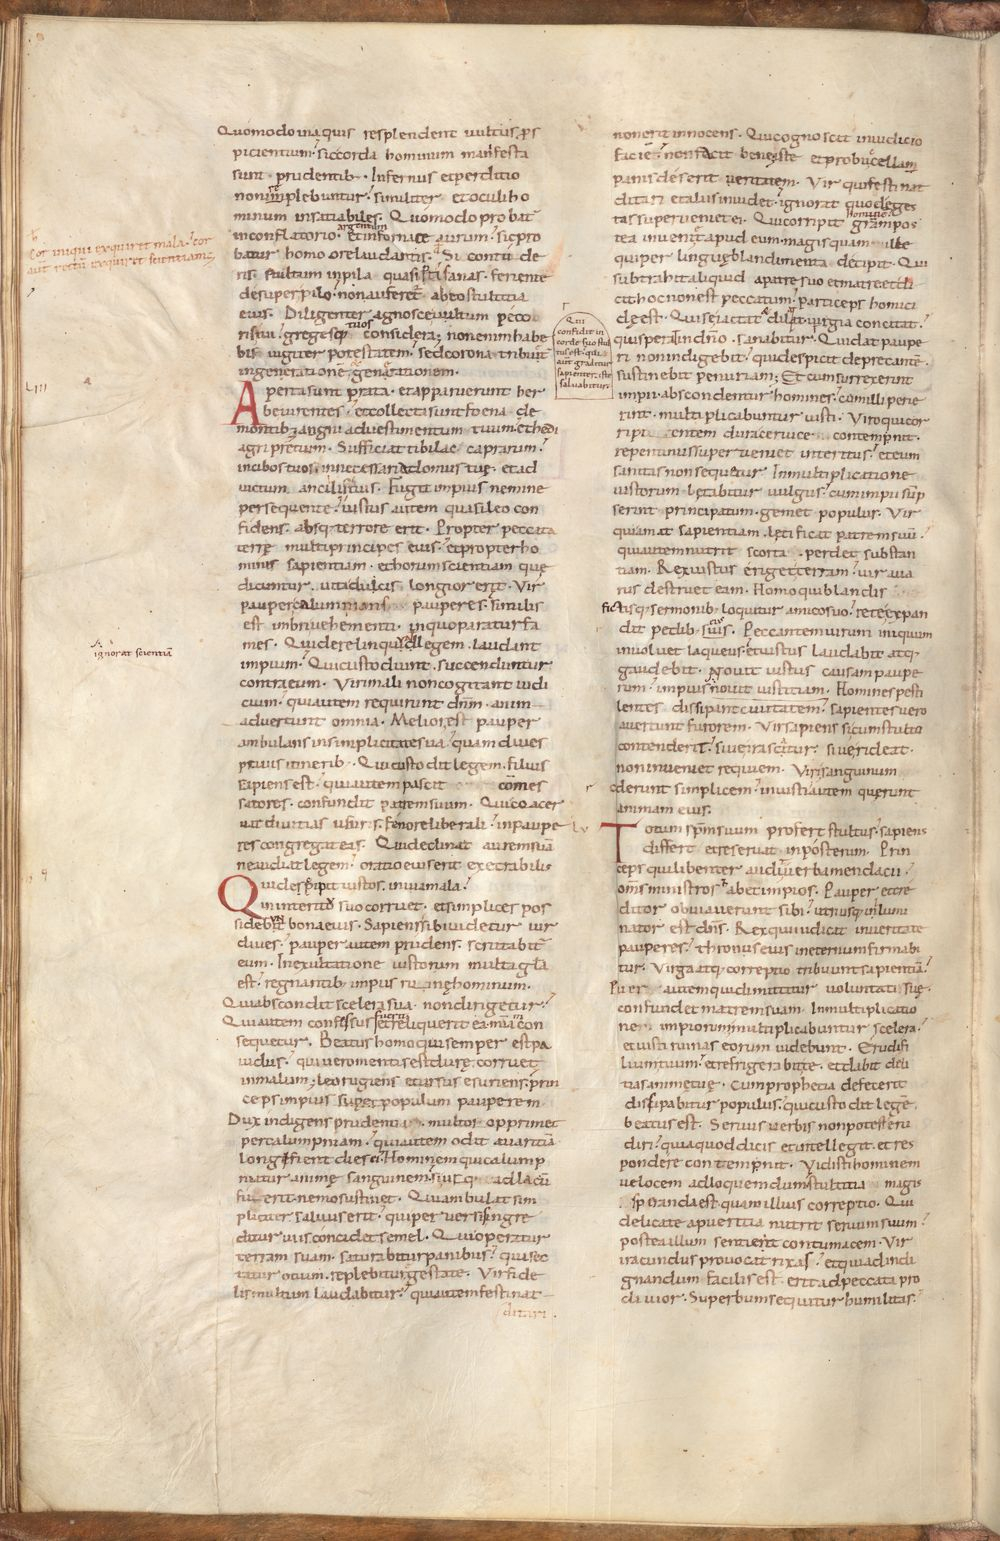 Quomodo in aquis resplendent uultus ps
picientium. sic corda hominum manifesta
sunt prudentib. Infernus et perditio
non implebuntur. similiter et oculi ho
minum insatiabiles. Quomodo probat
argentum
in conflatorio. et in fornace aurum. sic pro
batur homo ore laudantis. Si contu de
ris stultum in pila quasi ptisanas feriente
desuper pilo. non auferet ab eo stultitia
eius. Diligenter agnosce uultum peco
tuos
ris tui. greges considera; non enim habe
bis iugiter potestatem. sed corona tribuet
in generatione generationem.
Aperta sunt prata. et apparuerunt her
be uirentes. et collecta sunt foena de
montib; agni ad uestimentum tuum. et hedi
agri pretium. Sufficiat tibi lac caprarum
in cibos tuos. in necessaria domus tue. et ad
uictum ancillis tuis. Fugit impius nemine
persequente. iustus autem quasi leo con
fidens. absq; terrore erit. Propter peccata
terre multi principes eius. et propter ho
minis sapientiam. et horum scientiam que
dicuntur. uita ducis longior erit. Vir
pauper calumnians pauperes. similis
est imbri uehementi. in quo paratur fa
mes. Qui derelinquunt legem. laudant
impium. Qui custodiunt. succenduntur
contra eum. Viri mali non cogitant iudi
cium. qui autem requirunt dnm. anim
aduertunt omnia. Melior est pauper
ambulans in simplicitate sua. quam diues
prauis itinerib. Qui custodit legem. filius
sapiens est. qui autem pascit comes
satores. confundit patrem suum. Qui coacer
uat diuitias usuris. fenore liberali. in paupe
res congregat eas. Qui declinat aurem suam
ne audiat legem. oratio eius erit execrabilis
Qui decipit iustos in uia mala.
in interitu suo corruet. et simplices pos
sidebunt bona eius. Sapiens sibi uidetur uir
diues. pauper autem prudens. scrutabit
eum. In exultatione iustorum multa gla
est. regnantib. impiis ruine hominum.
Qui abscondit scelera sua. non dirigetur.
fuerit
Qui autem confessus et reliquerit ea. mam con
sequetur. Beatus homo qui semper est pa
uidus. qui uero mentis est dure. corruet
in malum. leo rugiens et ursus esuriens. prin
ceps impius super populum pauperem
Dux indigens prudentia. multos opprimet
per calumpniam. qui autem odit auaritia
longi fient dies ei. Hominem qui calump
niatur anime sanguinem. si usq; ad lacu
fugerit. nemo sustinet. Qui ambulat sim
pliciter saluus erit. qui peruersis ingre
ditur uiis concidet semel. Qui operatur
terram suam. saturabitur panibus. qui sec
tatur otium. replebitur egestate. Vir fide
lis multum laudabitur. qui autem festinat
ditari.
non erit innocens. Qui cognoscit in iudicio
faciem. non facit bene. iste et pro bucella
panis deserit ueritatem. Vir qui festinat
ditari et aliis inuidet. ignorat quod eges
tas superueniet ei. Qui corripit hominem. gram pos
tea inueniet apud eum. magis quam ille
qui per lingue blandimenta decipit. Qui
subtrahit aliquid a patre suo et matre. et di
cit hoc non est peccatum. particeps homici
de est. Qui se iactat et dilatat. iurgia concitat.
qui sperat in dno. sanabitur. Qui dat paupe
ri non indigebit. qui despicit deprecante.
sustinebit penuriam; Et cum surrexerint
impii. abscondentur homines. cum illi perie
rint. multiplicabuntur iusti. Viro qui cor
ripientem dura ceruice contempnit.
repentinus superueniet interitus. et eum
sanitas non sequetur. In multiplicatione
iustorum letabitur uulgus. cum impii sump
serint principatum. gemet populus. Vir
qui amat sapientiam. letificat patrem suu.
qui autem nutrit scorta. perdet substan
tiam. Rex iustus eriget terram. uir aua
rus destruet eam. Homo qui blandis
fictisq; sermonib. loquitur amico suo. rete expan
dit pedib. suis. Peccantem uirum iniquum
inuoluet laqueus. et iustus laudabit atq;
gaudebit. Nouit iustus causam paupe
rum. impius nouit iustitiam. Homines pesti
lentes dissipant ciuitatem. sapientes uero
auertunt furorem. Vir sapiens si cum stulto
contenderit. siue irascitur. siue rideat.
non inueniet requiem. Viri sanguinum
oderunt simplicem. iusti autem querunt
animam eius.
Totum spm suum profert stultus. sapiens
differt et reseruat in posterum. Prin
ceps qui libenter audit uerba mendacii.
oms ministros habet impios. Pauper et cre
ditor obuiauerunt sibi. utriusq; illumi
nator est dns. Rex qui iudicat in ueritate
pauperes. thronus eius in eternum firmabi
tur. Virga atq; correptio tribuunt sapientia.
Puer autem qui dimittitur uoluntati sue.
confundet matrem suam. In multiplicatio
ne impiorum multiplicabuntur scelera.
et iusti ruinas eorum uidebunt. Erudi fi
lium tuum. et refrigerabit te. et dabit deli
tias anime tue. Cum prophetia defecerit
dissipabitur populus. qui custodit lege.
beatus est. Seruus uerbis non potest eru
diri. quia quod dicis et intellegit. et res
pondere contempnit. Vidisti hominem
uelocem ad loquendum. stultitia magis
speranda est quam illius correptio. Qui
delicate a pueritia nutrit seruum suum.
postea illum sentiet contumacem. Vir
iracundus prouocat rixas. et qui ad indi
gnandum facilis est. erit ad peccata pro
cliuior. Superbum sequitur humilitas.
Cor iniqui exquiret mala. cor
aut rectu exquiret scientiam;
LIII
ignorat scientia
Qui
confidit in
corde suo stul
tus est. qui
aut graditur
sapienter. iste
saluabitur